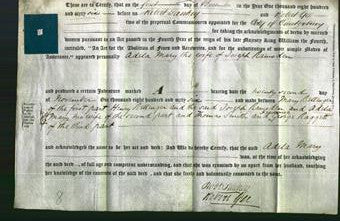 These are to Certify, that on the first day of December in the Year One thousand eight hundred
and forty six before us Robert Sankey and Robert Gee
two of the perpetual Commissioners appointed for the City of Canterbury
for taking the acknowledgments of deeds by married
women pursuant to an Act passed in the Fourth Year of the reign of his late Majesty King William the Fourth,
intituled, "An Act for the Abolition of Fines and Recoveries, and for the substitution of more simple Modes of
Assurance," appeared personally Adela Mary the wife of Joseph
and produced a certain Indenture marked A bearing date the twenty second day
of November One thousand eight hundred and forty six and made between Mary
of the first part and the said Joseph and Adela
Mary his wife of the second part and Thomas Smith George Haggett
of the third part
and acknowledged the same to be her act and deed: And We do hereby Certify that the said Adela Mary
was, at the time of her acknowledging
the said deed, of full age and competent understanding, and that she was examined by us apart from her husband, touching
her knowledge of the contents of the said deed, and that she freely and voluntarily consented to the same.
Robt Sankey
Robert Gee
8